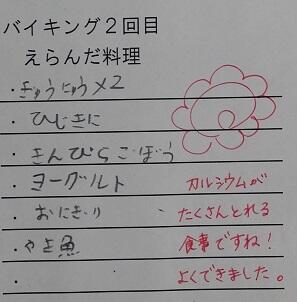 バイキング２回目
えらんだ料理
・ぎゅうにゅう×2
・ひじきに
・きんぴらごぼう
・ヨーグルト
・おにぎり
・やき魚
・
カルシウムが
たくさんとれる
食事ですね!
よくできました。